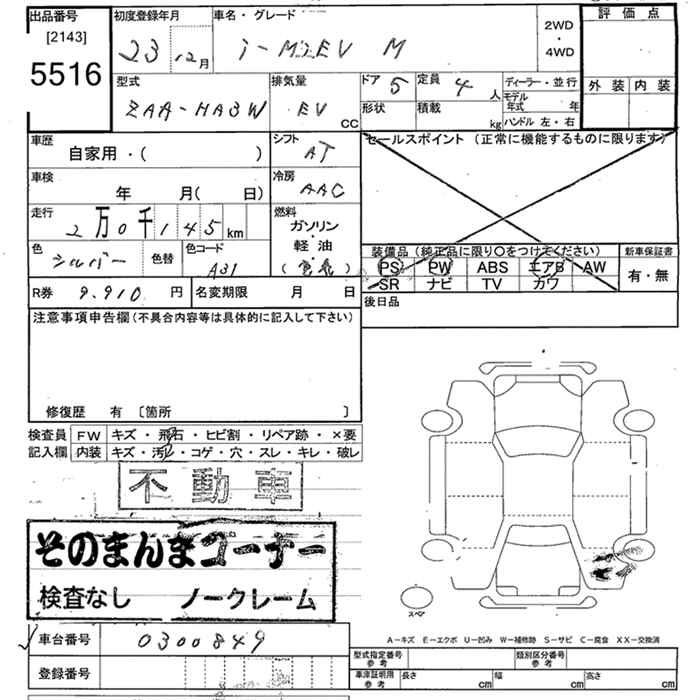 出品番号 初度登録年月 車名・グレード 評価点
[2143] 23 12月 i-MiEV M 2WD・4WD
5516
型式 排気量 ドア 5 定員 4人 ディーラー・並行 外装 内装
ZAA-HA3W EV CC 形状 積載 kg モデル年式 年
ハンドル 左・右
車歴 シフト セールスポイント (正常に機能するものに限ります)
自家用・( ) AT
車検 冷房
年 月( 日) AAC
走行 燃料
2万0千145km ガソリン・
色 シルバー 色替 色コード A31 軽油 装備品 (純正品に限り〇をつけてください) 新車保証書
(電気) PS PW ABS エアB AW 有・無
SR ナビ TV カワ
R券 9.910円 名変期限 月 日 後日品
注意事項申告欄(不具合内容等は具体的に記入して下さい)
修復歴 有 〔箇所 〕
検査員 FW キズ・飛石・ヒビ割・リペア跡・×要
記入欄 内装 キズ・汚れ・コゲ・穴・スレ・キレ・破レ
不動車
そのまんまコーナー
検査なし ノークレーム
スペア
A-キズ E-エクボ U-凹み W-補修跡 S-サビ C-腐食 XX-交換済
車台番号 0300849
型式指定番号 参考 類別区分番号 参考
登録番号 車庫証明用 参考 長さ cm 幅 cm 高さ cm